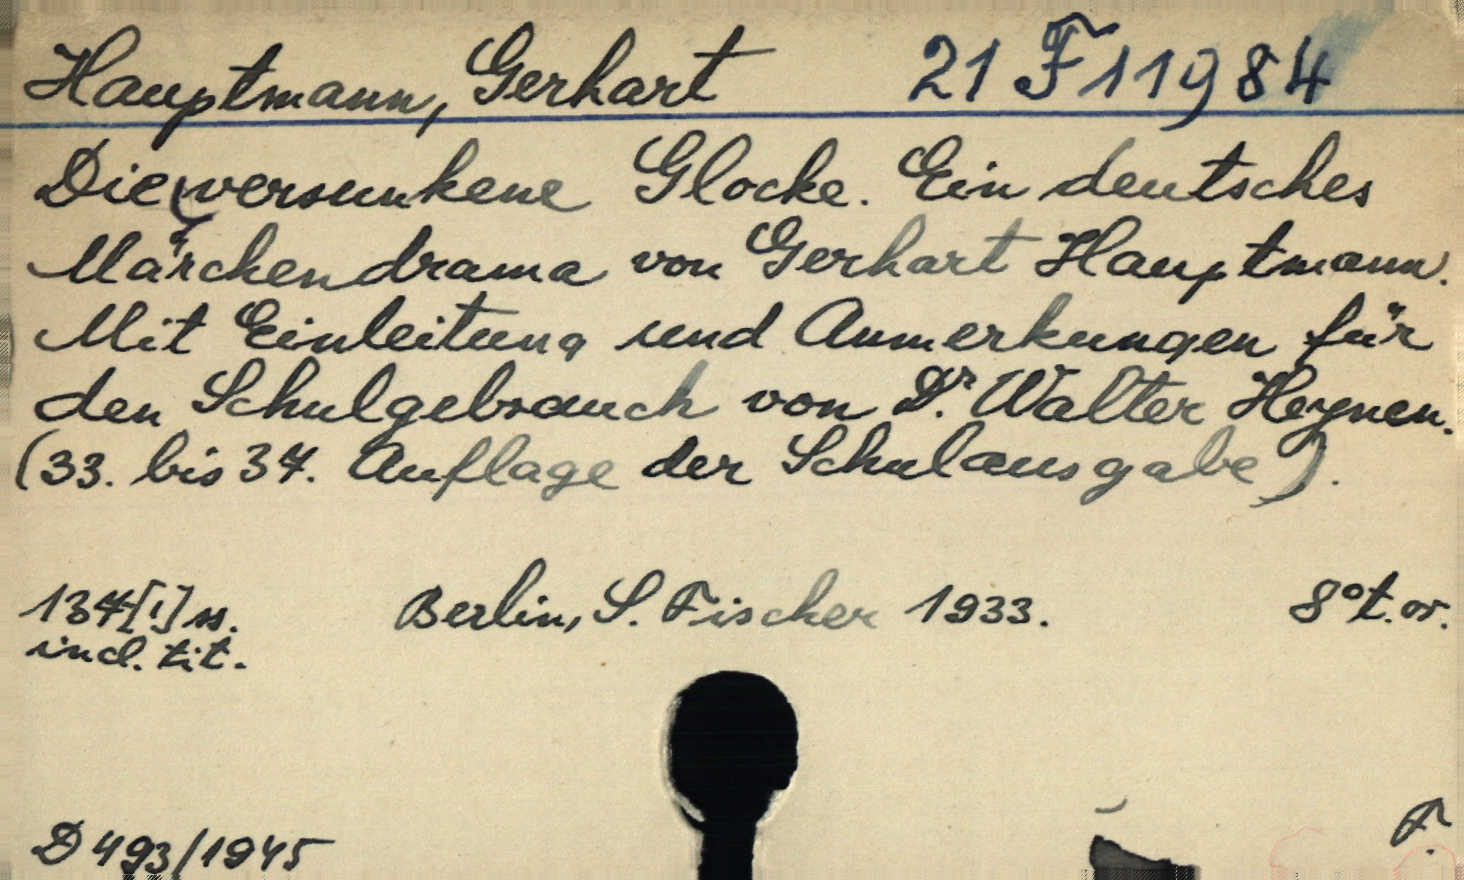 Hauptmann, Gerhart 21 F 11984
Die versunkene Glocke. Ein deutsches
Märchendrama von Gerhart Hauptmann.
Mit Einleitung und Anmerkungen für
den Schulgebrauch von Dr. Walter Heynen.
(33. bis 37. Auflage der Schulausgabe).
134[!] ss. Berlin, S. Fischer 1933. 8° t. or.
incl. tit.
D 493/1945 F.